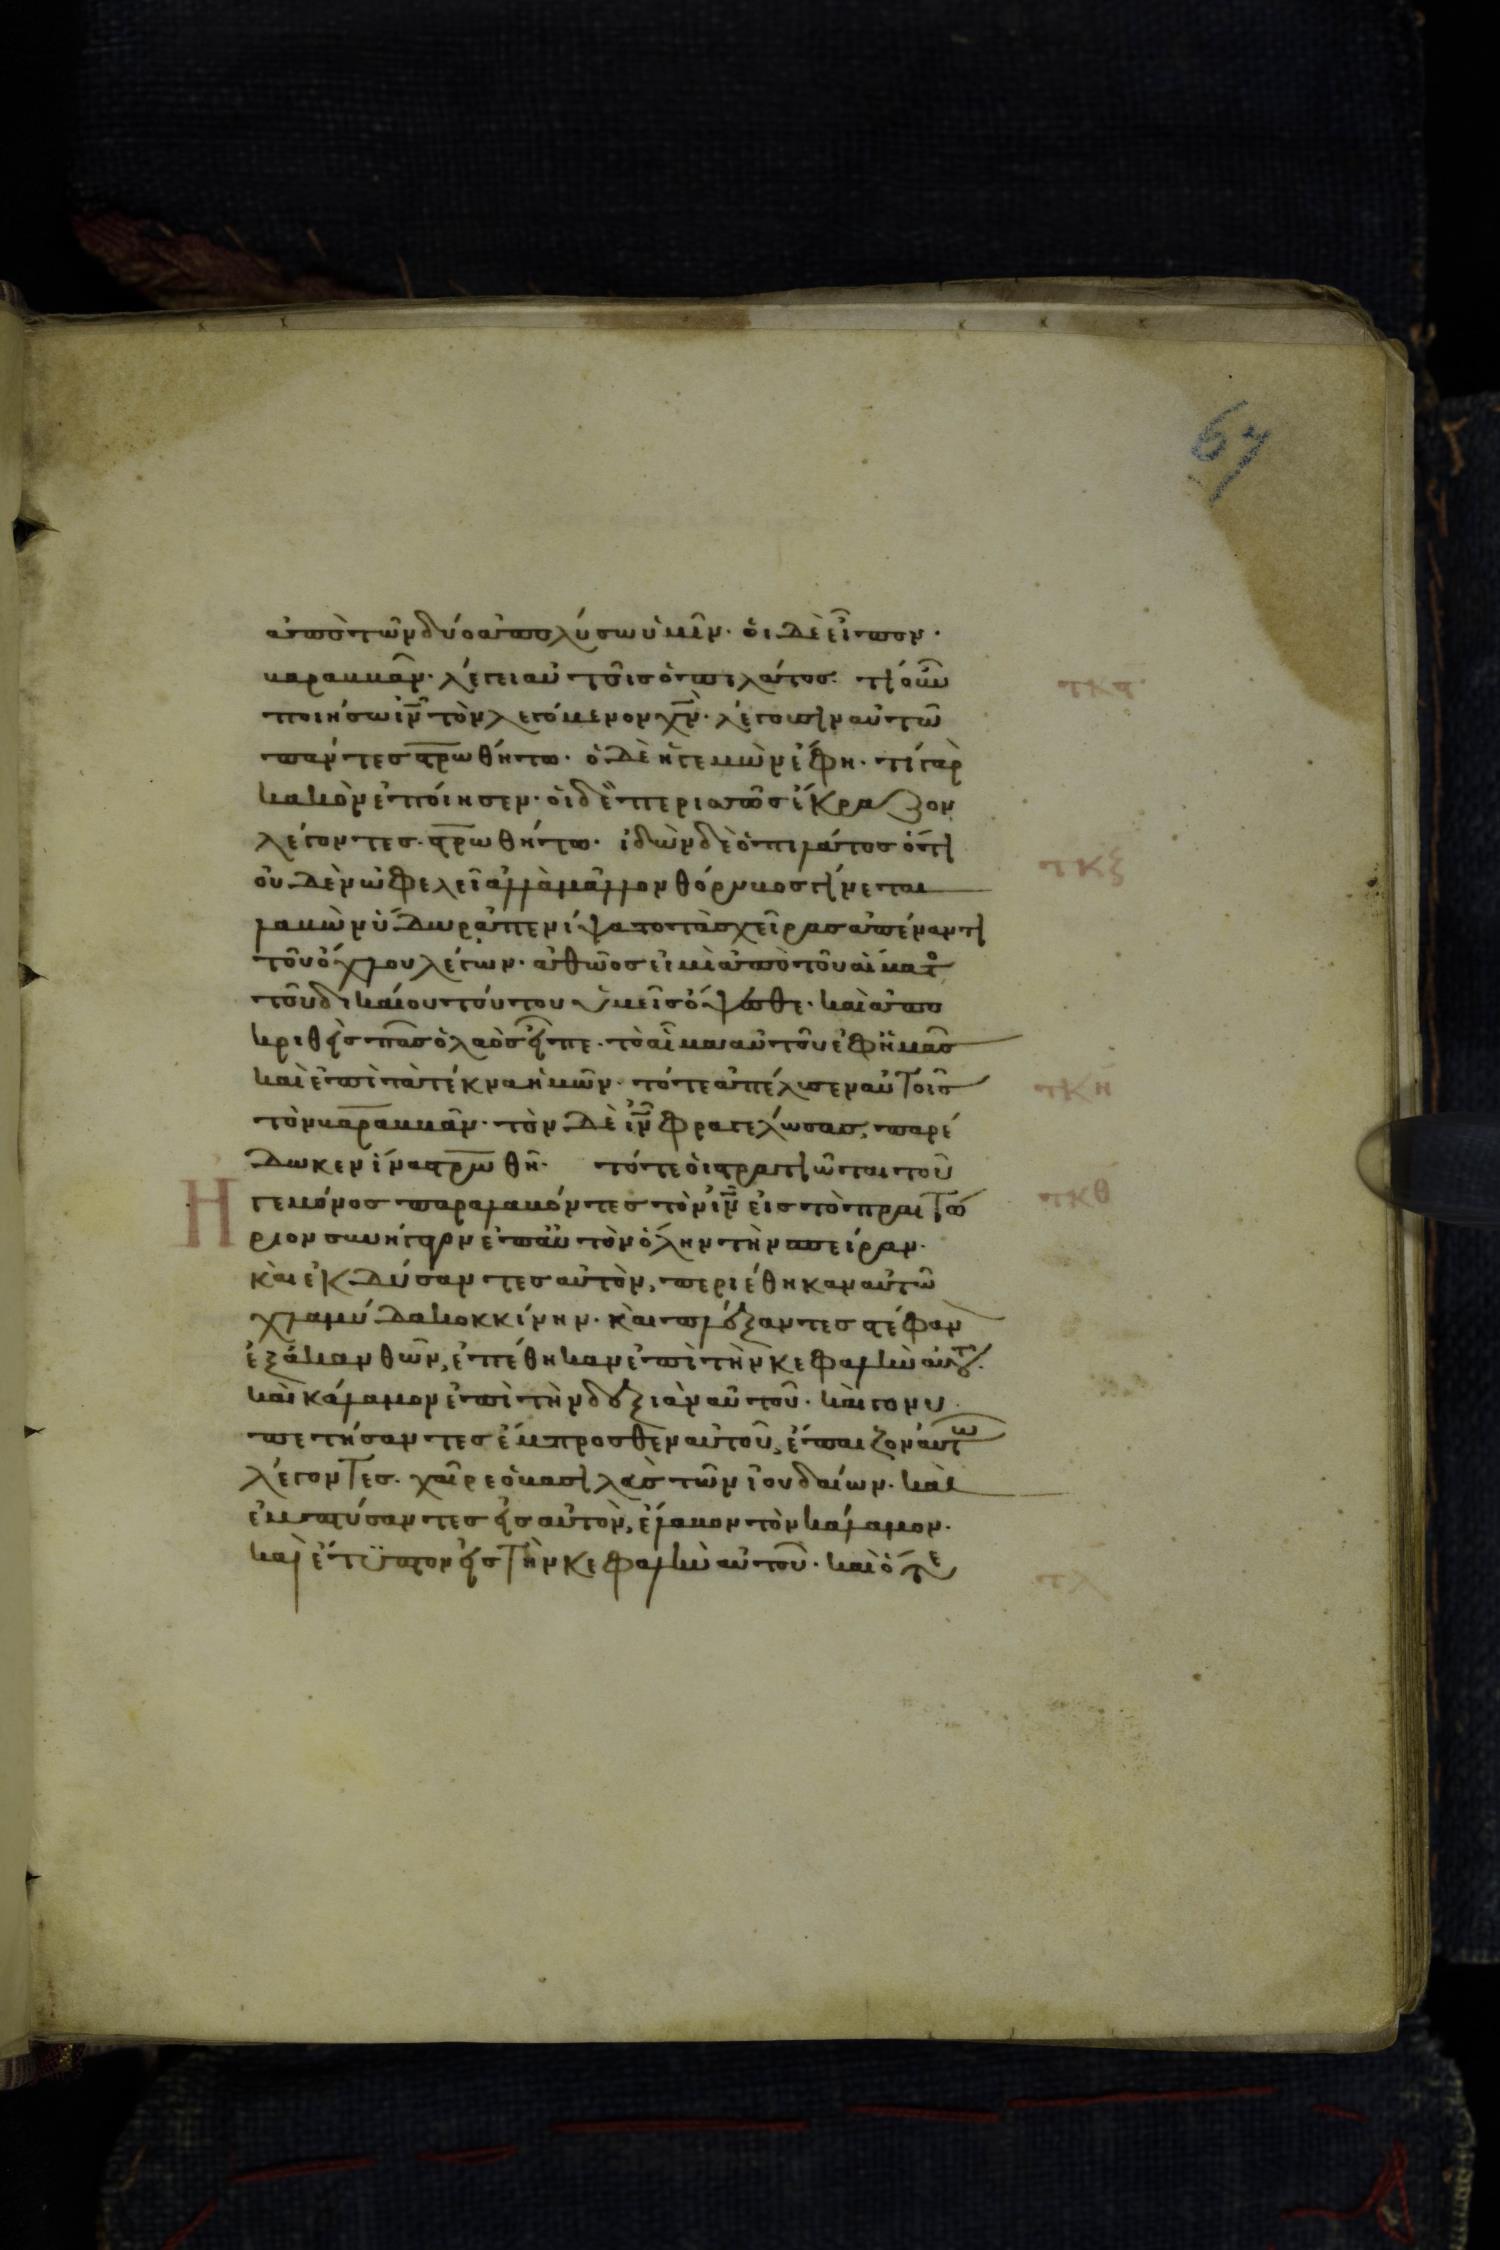 67
ἀπὸ τῶν δύο ἀπολύσω ὑμῖν· ὁι δὲ εἶπον·
βαραββᾶν· λέγει αὐτοῖς ὁ πιλάτος· τί οὖν
τκϛ
ποιήσω ἰν̅ τὸν λεγόμενον χν̅· λέγουσιν αὐτῶ
πάντες στρω̅θήτω· ὁ δὲ ἡγεμὼν ἔφη· τί γὰρ
κακὸν ἐποίησεν· ὁι δὲ περισσῶς ἔκραζον
λέγοντες· στρω̅θήτω· ἰδὼν δὲ ὁ πιλάτος ὅτι
τκζ
οὐδὲν ὠφελεῖ ἀλλὰ μᾶλλον θόρυβος γίνεται
λαβὼν ὕδωρ ἀπενίψατο τὰς χεῖρας ἀπέναντι
τοῦ ὄχλου λέγων· ἀθῶος εἰμὶ ἀπὸ τοῦ αἵματο
τοῦ δικαίου τούτου ὑμεῖς ὄψεσθε· καὶ ἀπο
κριθεὶς πᾶς ὁ λαὸς εἶπε· τὸ αἷμα αὐτοῦ ἐφ ἡμᾶς
καὶ ἐπὶ τὰ τέκνα ἡμῶν· τότε ἀπέλυσεν αὐτοῖς
τκη
τὸν βαραββᾶν· τὸν δὲ ἰν̅ φραγελώσας, παρέ
δωκεν ἵνα στρω̅θῆ· τότε ὁι στρατιῶται τοῦ
Ηγεμόνος παραλαβόντες τὸν ἰν̅ εἰς τὸ πραιτώ
τκθ
ριον συνήγαγον ἐπ αὐτὸν ὅλην τὴν σπείραν·
καὶ ἐκδύσαντες αὐτὸν, περιέθηκαν αὐτῶ
χλαμύδα κοκκίνην· καὶ πλέξαντες στέφαν
ἐξ ἀκανθῶν, ἐπέθηκαν ἐπὶ τὴν κεφαλὴν αὐτοῦ·
καὶ κάλαμον ἐπὶ τὴν δεξιὰν αὐτοῦ· καὶ γονυ
πετήσαντες ἔμπροσθεν αὐτοῦ, ἐνέπαιζον αὐτῶ
λέγοντες· χαῖρε ὁ βασιλεὺς τῶν ἰουδαίων· καὶ
ἐμπτύσαντες εἰς αὐτὸν, ἔλαβον τὸν κάλαμον·
καὶ ἔτυπτον εἰς τὴν κεφαλὴν αὐτοῦ· καὶ ὅτε
τλ